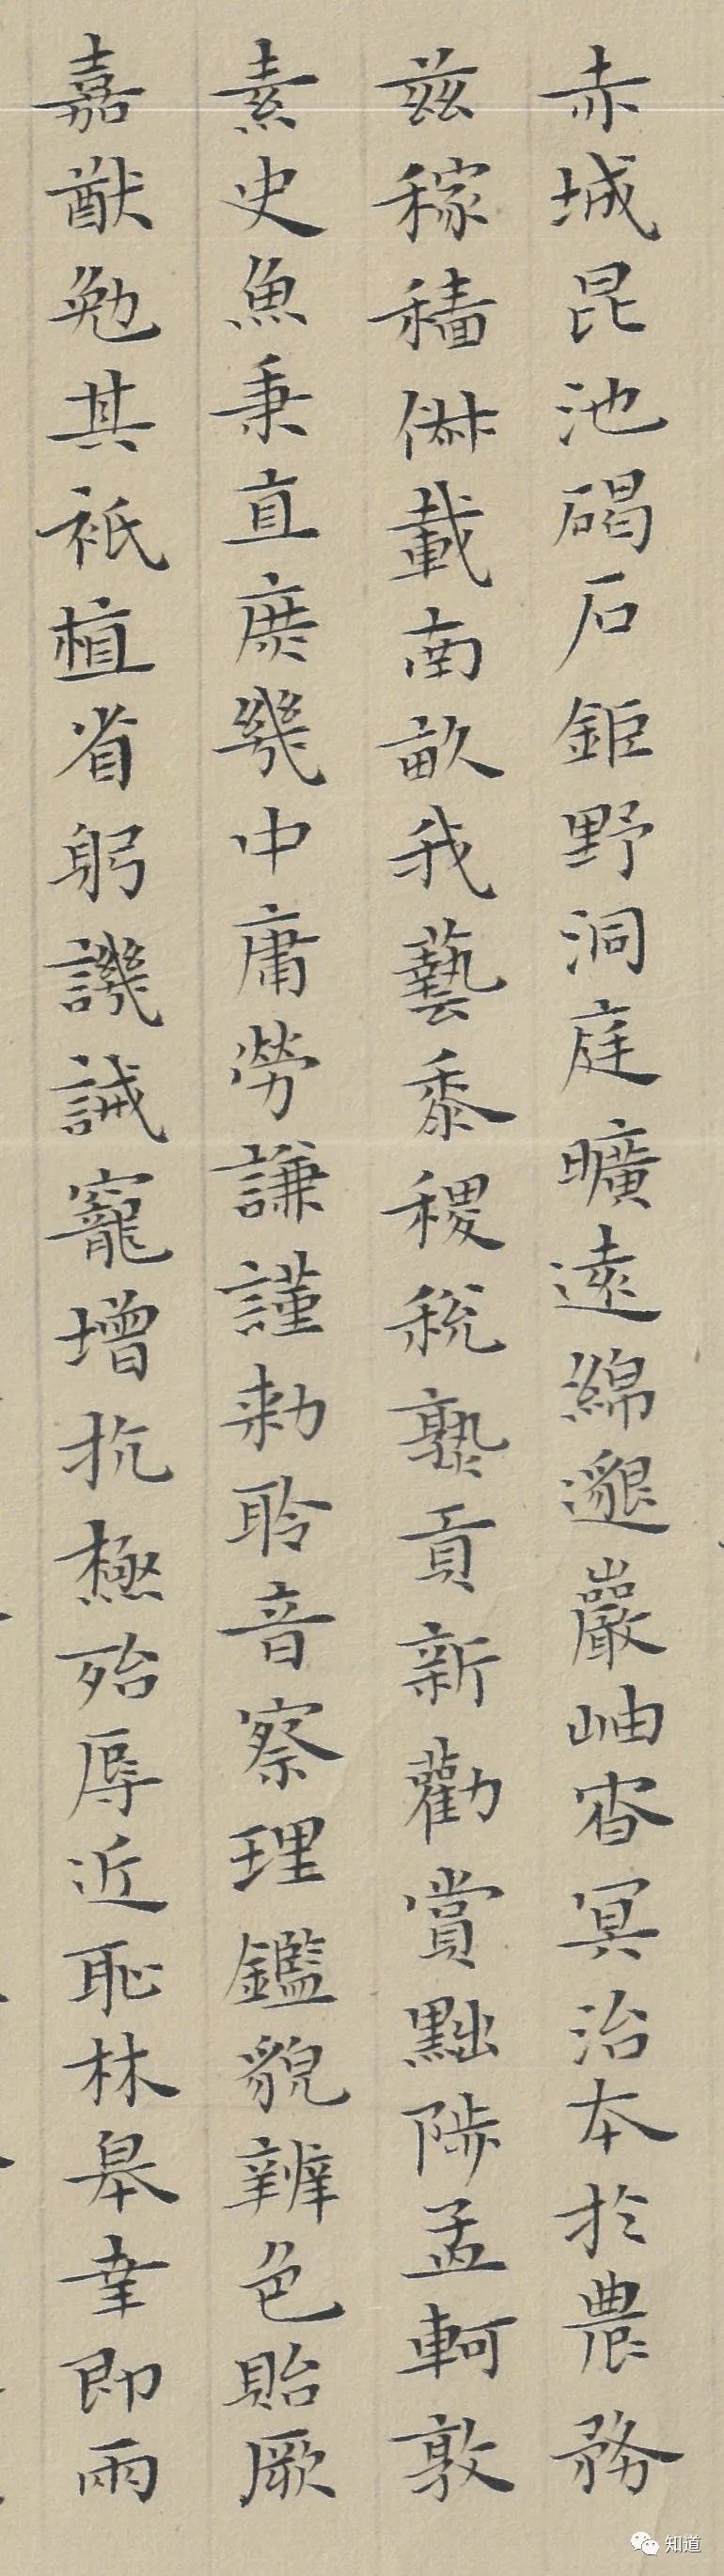 赤城昆池碣石鉅野洞庭曠遠綿邈巖岫杳冥治本於農務
兹稼穡俶載南畝我藝黍稷稅熟貢新勸賞黜陟孟軻敦
素史魚秉直庶幾中庸勞謙謹勑聆音察理鑑貌辨色貽厥
嘉猷勉其祇植省躬譏誡寵增抗極殆辱近恥林皋幸即兩
知道